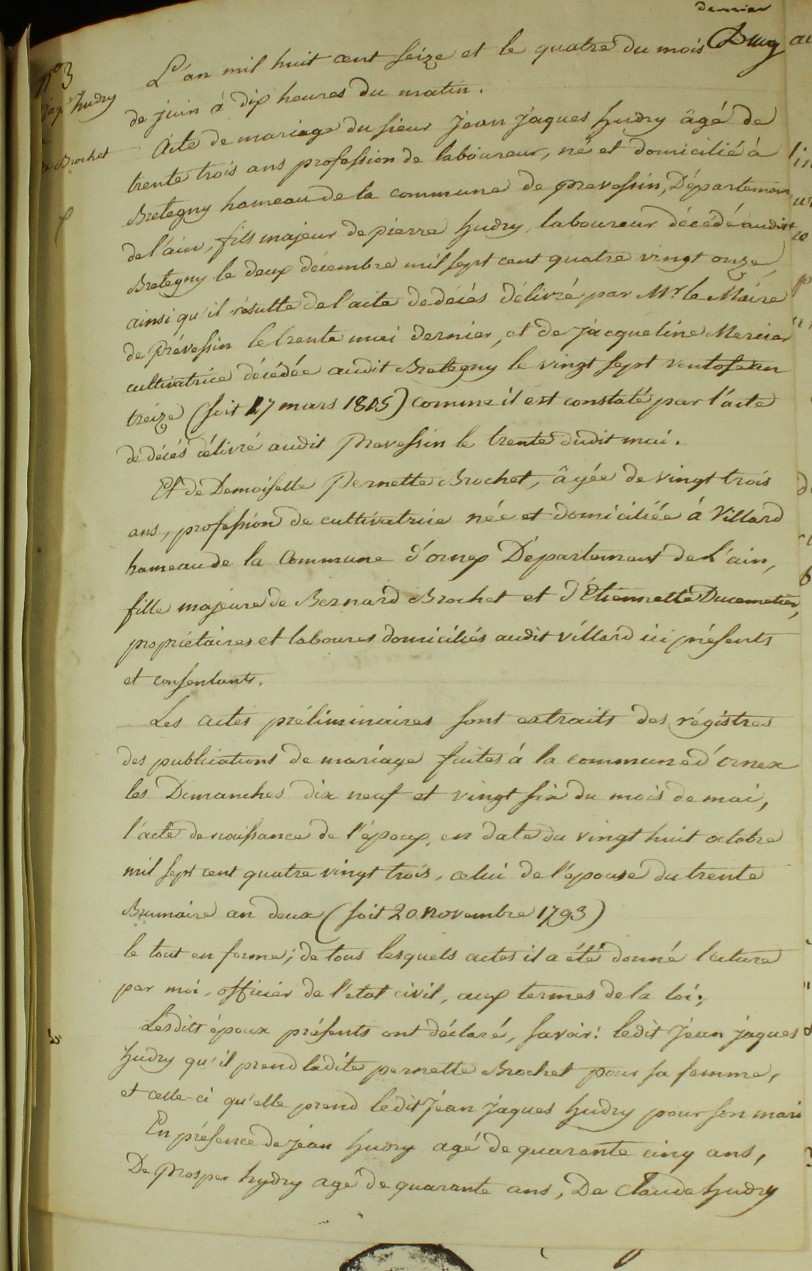 dernier
N° 3
L'an mil huit cent seize et le quatre du mois
hudry
de juin à dix heures du matin.
Brochet
Acte de mariage du sieur Jean Jaques hudry âgé de
trente trois ans profession de laboureur, né et domicilié à
Bretegny hameau de la commune de prevessin, Département
de l'ain, fils majeur de pierre hudry, laboureur décédé audit
Bretegny le deux décembre mil sept cent quatre vingt onze,
ainsi qu'il résulte de l'acte de décés délivré par Mr le Maire
de prévessin le trente mai dernier, et de jacqueline Mercier
cultivatrice décédée audit Bretegny le vingt sept ventose an
treize (soit 17 mars 1805) comme il est constaté par l'acte
de décés délivré audit prevessin le trente dudit mai.
Et de Demoiselle Pernette Brochet, âgée de vingt trois
ans, profession de cultivatrice née et domiciliée à Villard
hameau de la Commune d'ornex Département de L'ain,
fille majeure de Bernard Brochet et d'Etiennette Ducemetier,
propriétaires et laboures domiciliés audit villard ici présents
et consentants.
Les actes préliminaires sont extraits des régistres
des publications de mariage faites à la commune d'ornex
les Dimanches dix neuf et vingt six du mois de mai,
l'acte de naissance de l'époux, en date du vingt huit octobre
mil sept cent quatre vingt trois, celui de l'épouse du trente
Brumaire an deux (soit 20 novembre 1793)
le tout en forme; de tous lesquels actes il a été donné lecture
par moi, officier de l'etat civil, aux termes de la loi;
Lesdits époux présents ont déclaré, savoir: ledit Jean jaques
hudry qu'il prend ladite pernette Brochet pour sa femme,
et celle-ci qu'elle prend ledit Jean Jaques hudry pour son mari
En présence de jean hudry agé de quarante cinq ans,
De Prosper hydry agé de quarante ans, De Claude hudry